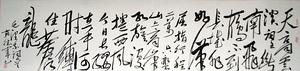 天高雲
淡望断
南飛
雁不到
长城非
好漢
屈指行程
二万六盘
山上高峰
红旗漫
捲西风
今日长缨
在手何
時缚
住蒼
龍